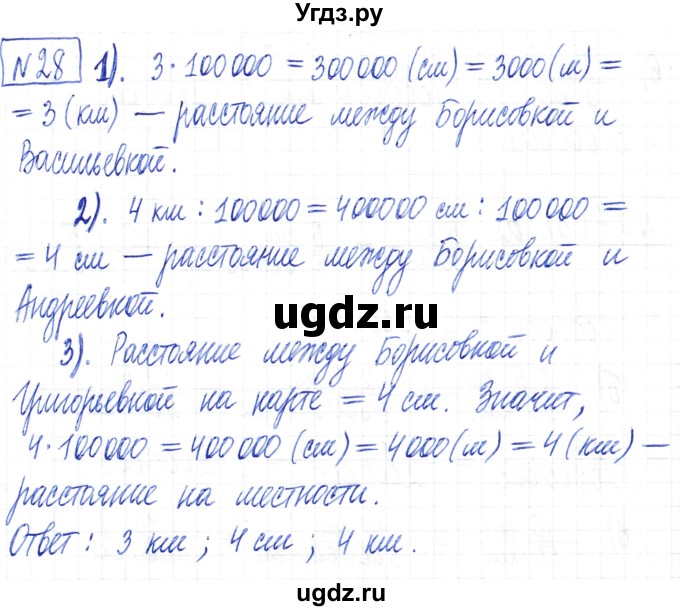 Угдз.ру
№28 1). 3·100000 = 300000 (см) = 3000(м) =
= 3 (км) — расстояние между Борисовкой и
Васильевкой.
2). 4 км : 100000 = 400000 см : 100000 =
= 4 см — расстояние между Борисовкой и
Андреевкой.
ugdz.ru
3). Расстояние между Борисовкой и
Григорьевкой на карте = 4 см. Значит,
4·100000 = 400000 (см) = 4000(м) = 4(км) —
расстояние на местности.
Ответ: 3 км; 4 см; 4 км.
ugdz.ru